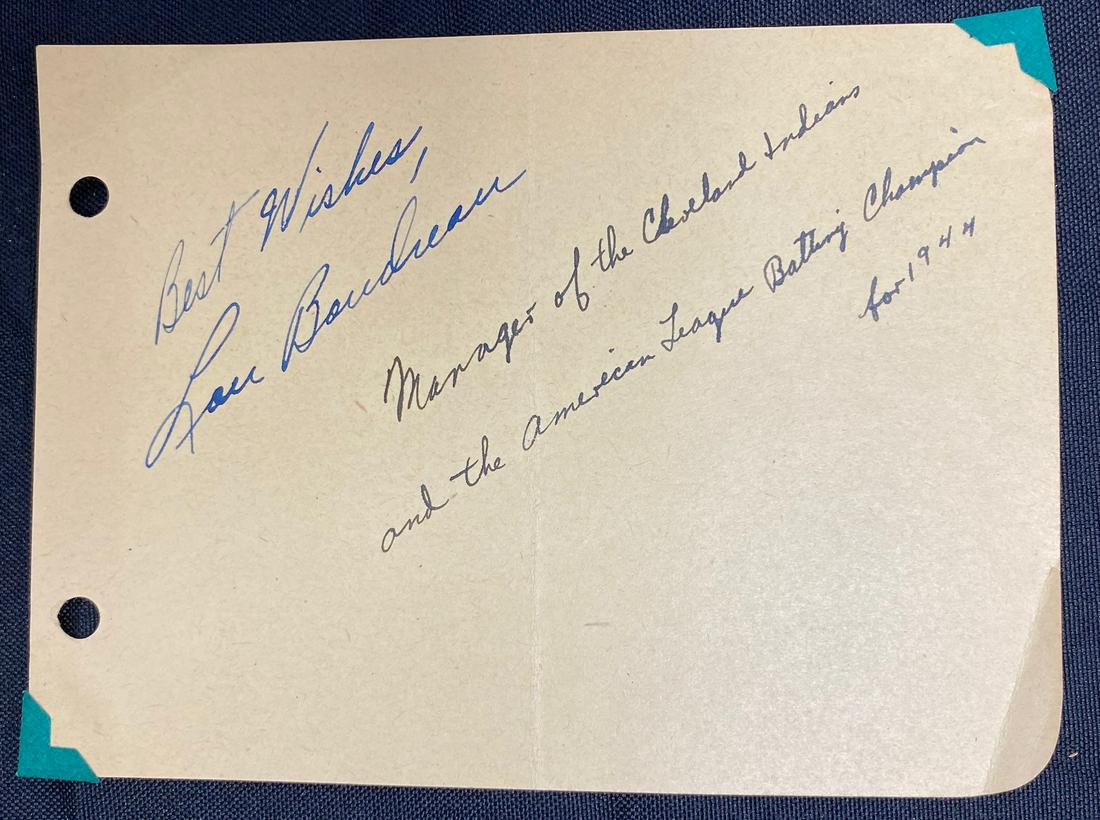 Best Wishes,
Lou Boudreau
Manager of the Cleveland Indians
and the American League Batting Champion
for 1944